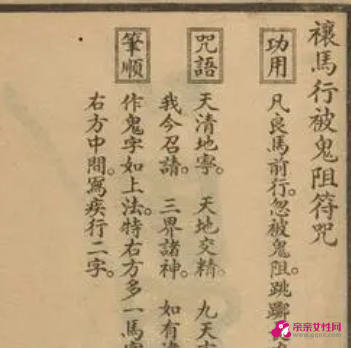 禳馬行被鬼阻符咒
功用
凡良馬前行。忽被鬼阻。跳躑
咒語
天清地寧。天地交精。九天
我今召請。三界諸神。如有
筆順
作鬼字如上法。特右方多一馬字
右方中間。寫疾行二字。
亲亲女性网
www.qqnz.com